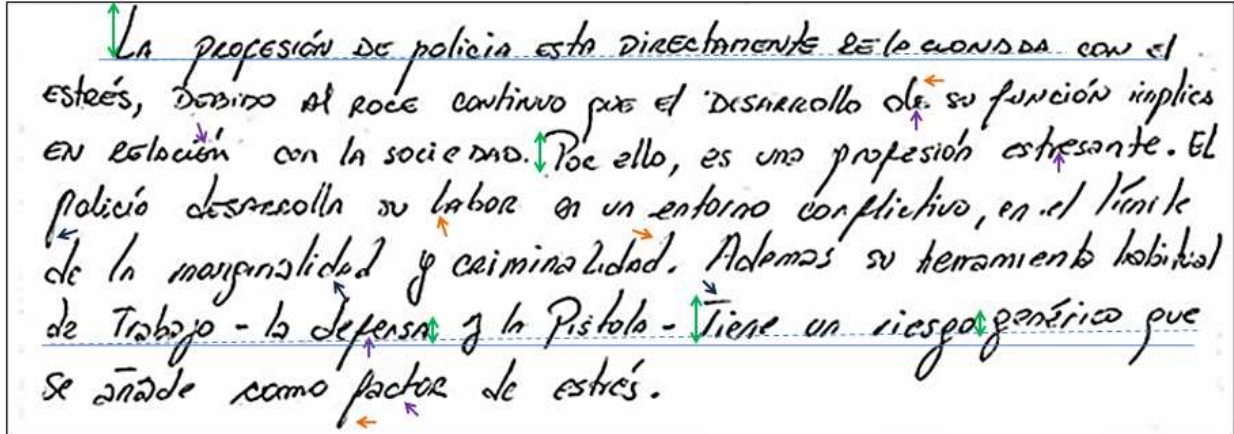 LA PROFESIÓN DE policia esta DIRECtAMENTE RElacIONADA con el
estrés, DEBIDO Al ROCE continuo que el DESARROllo de su función implica
EN Relación con lA socieDAD. Por ello, es una profesión estresante. El
policía desarrolla su labor en un entorno conflictivo, en el límite
de la marginalidad y criminalidad. Ademas su herramienta habitual
de Trabajo - la defensa y la Pistola - Tiene un riesgo genérico que
se añade como factor de estrés.